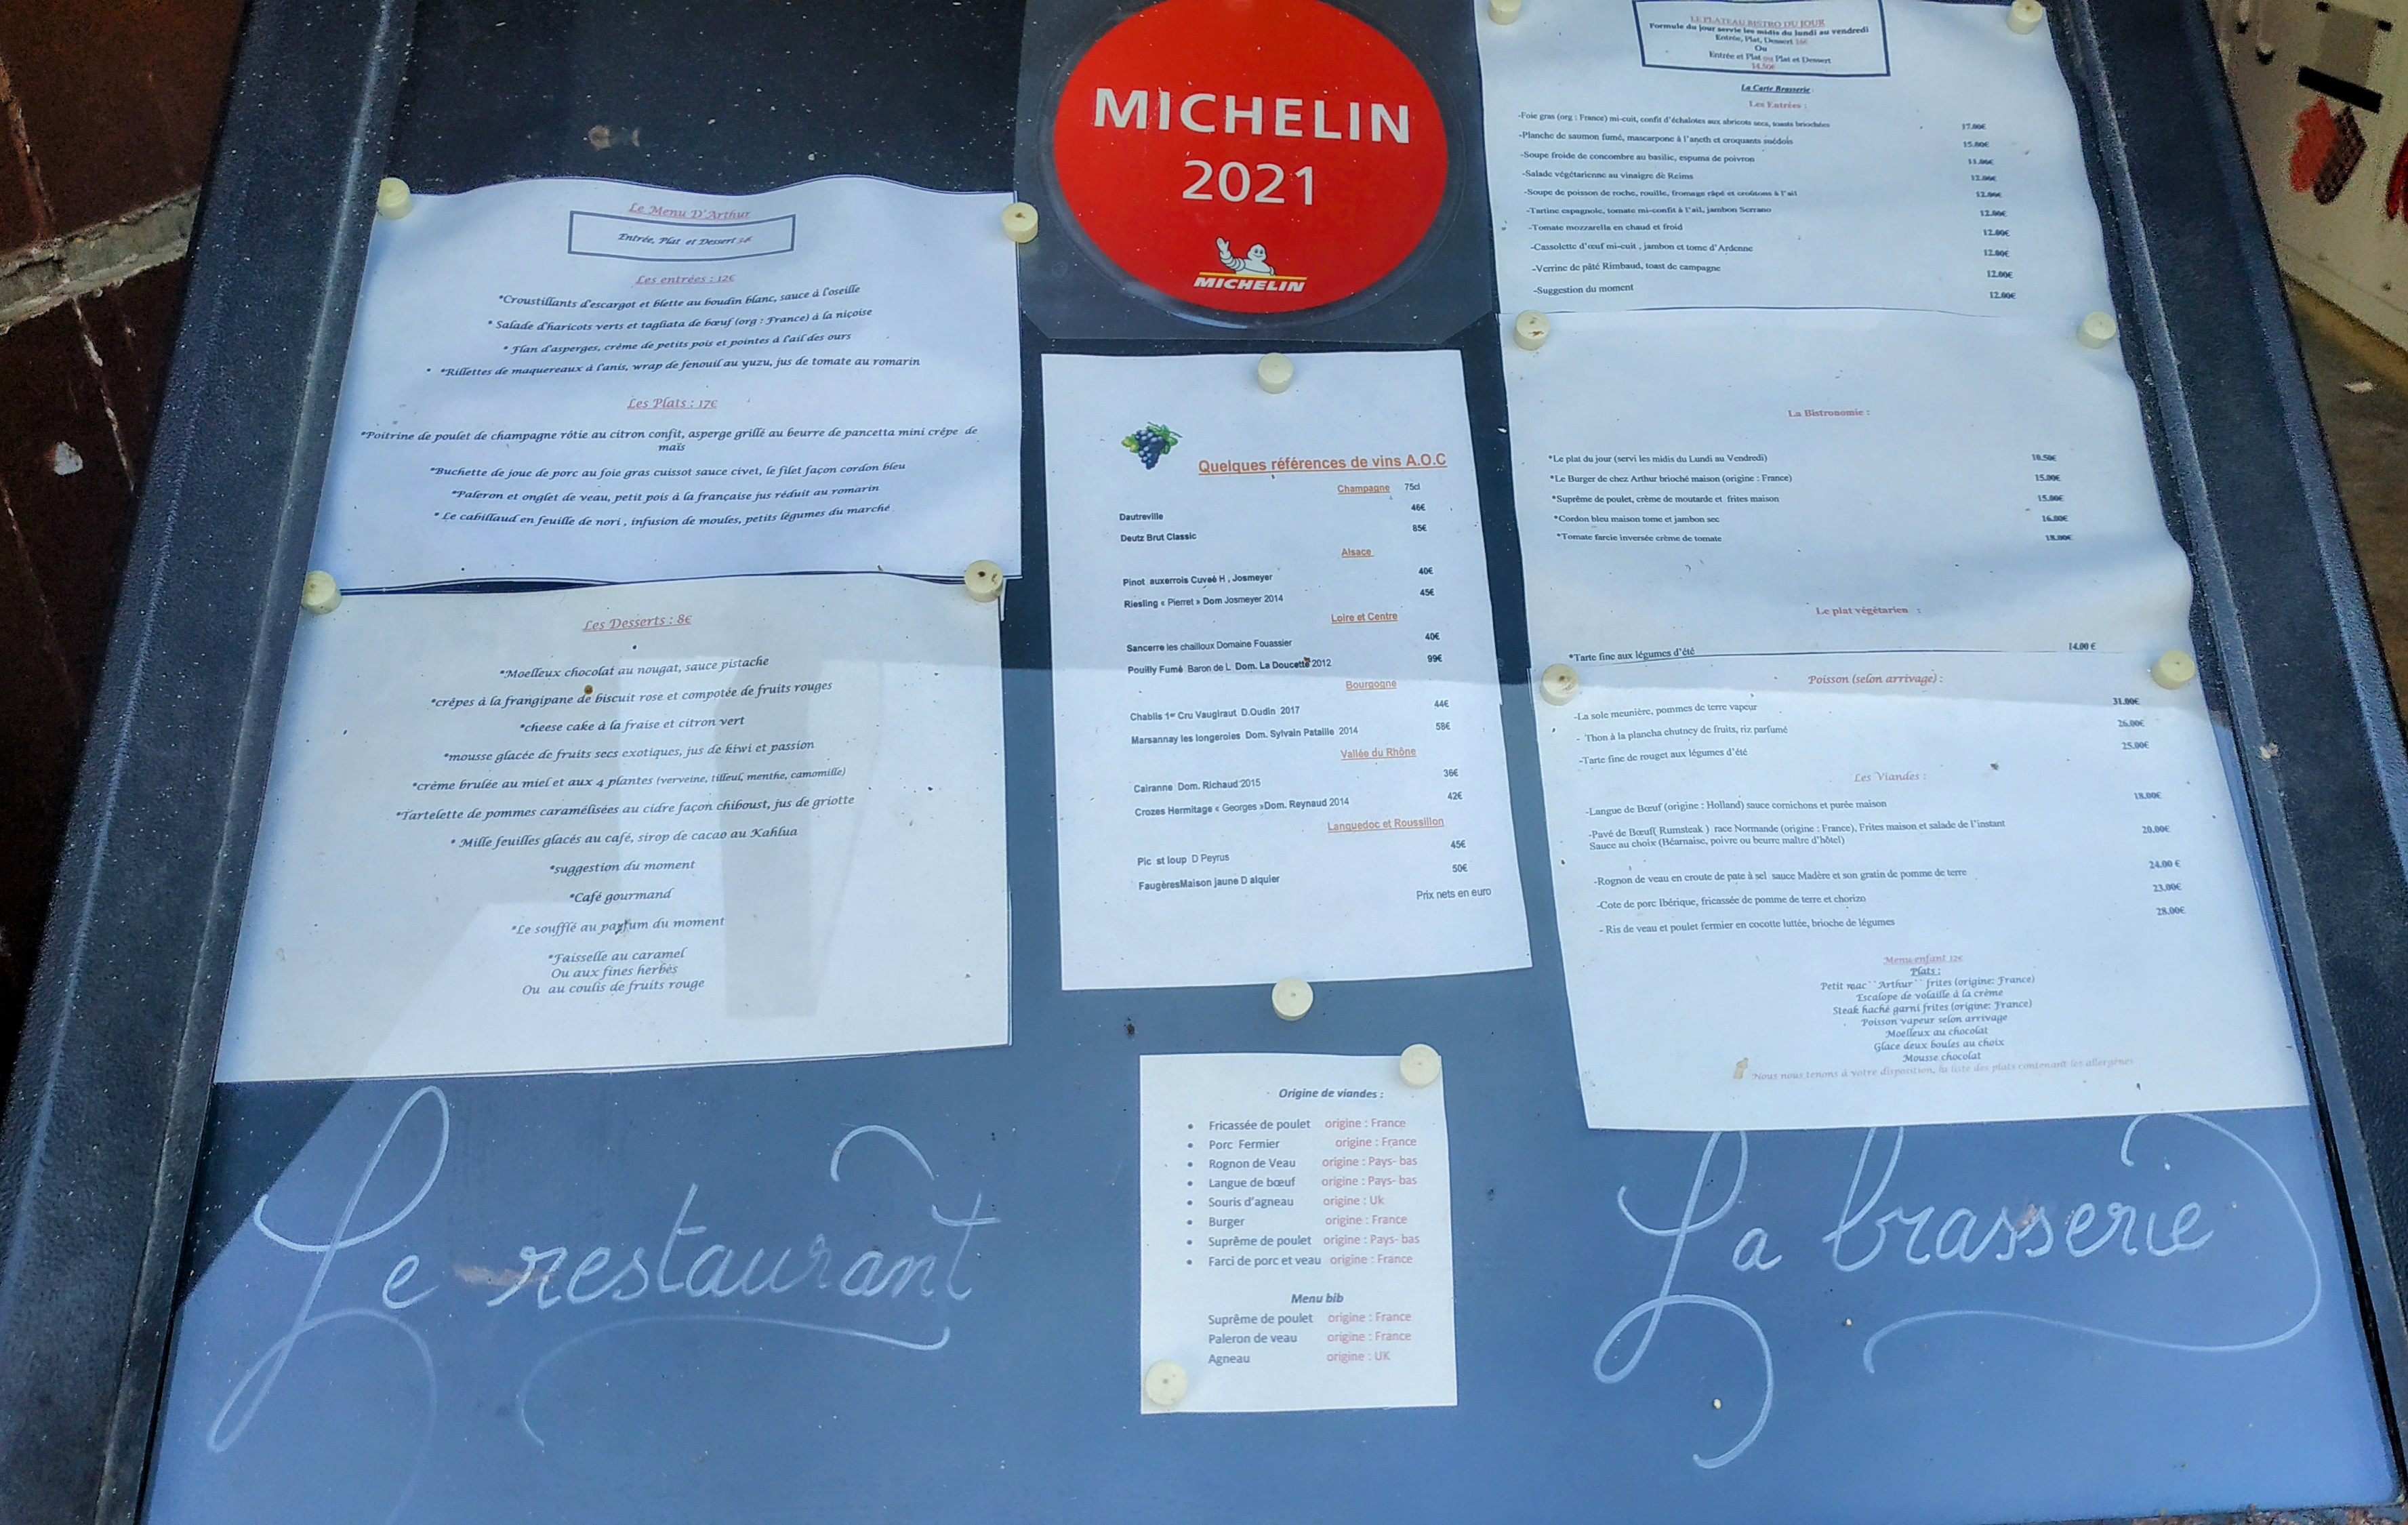 Le Menu D'Arthur
Entrée, Plat et Dessert
Les entrées : 12€
*Croustillants d'escargot et blette au boudin blanc, sauce à l'oseille
* Salade d'haricots verts et tagliata de bœuf (org : France) à la niçoise
* Flan d'asperges, crème de petits pois et pointes à l'ail des ours
• *Rillettes de maquereaux à l'anis, wrap de fenouil au yuzu, jus de tomate au romarin
Les Plats : 17€
*Poitrine de poulet de champagne rôtie au citron confit, asperge grillé au beurre de pancetta mini crêpe de
maïs
*Buchette de joue de porc au foie gras cuissot sauce civet, le filet façon cordon bleu
*Paleron et onglet de veau, petit pois à la française jus réduit au romarin
* Le cabillaud en feuille de nori , infusion de moules, petits légumes du marché
Les Desserts : 8€
*Moelleux chocolat au nougat, sauce pistache
*crêpes à la frangipane de biscuit rose et compotée de fruits rouges
*cheese cake à la fraise et citron vert
*mousse glacée de fruits secs exotiques, jus de kiwi et passion
*crème brulée au miel et aux 4 plantes (verveine, tilleul, menthe, camomille)
*Tartelette de pommes caramélisées au cidre façon chiboust, jus de griotte
* Mille feuilles glacés au café, sirop de cacao au Kahlua
*suggestion du moment
*Café gourmand
*Le soufflé au parfum du moment
*Faisselle au caramel
Ou aux fines herbes
Ou au coulis de fruits rouge
Le restaurant
MICHELIN
2021
MICHELIN
Quelques références de vins A.O.C
Champagne 75cl
Dautreville 46€
Deutz Brut Classic 85€
Alsace
Pinot auxerrois Cuveé H , Josmeyer 40€
Riesling « Pierret » Dom Josmeyer 2014 45€
Loire et Centre
Sancerre les chailloux Domaine Fouassier 40€
Pouilly Fumé Baron de L Dom. La Doucette 2012 99€
Bourgogne
Chablis 1er Cru Vaugiraut D.Oudin 2017 44€
Marsannay les longeroies Dom. Sylvain Pataille 2014 58€
Vallée du Rhône
Cairanne Dom. Richaud 2015 36€
Crozes Hermitage « Georges »Dom. Reynaud 2014 42€
Languedoc et Roussillon
Pic st loup D Peyrus 45€
FaugèresMaison jaune D alquier 50€
Prix nets en euro
Origine de viandes :
• Fricassée de poulet origine : France
• Porc Fermier origine : France
• Rognon de Veau origine : Pays- bas
• Langue de bœuf origine : Pays- bas
• Souris d'agneau origine : Uk
• Burger origine : France
• Suprême de poulet origine : Pays- bas
• Farci de porc et veau origine : France
Menu bib
Suprême de poulet origine : France
Paleron de veau origine : France
Agneau origine : UK
LE PLATEAU BISTRO DU JOUR
Formule du jour servie les midis du lundi au vendredi
Entrée, Plat, Dessert 16€
Ou
Entrée et Plat ou Plat et Dessert
14.50€
La Carte Brasserie
Les Entrées :
-Foie gras (org : France) mi-cuit, confit d'échalotes aux abricots secs, toasts briochées 17.00€
-Planche de saumon fumé, mascarpone à l'aneth et croquants suédois 15.00€
-Soupe froide de concombre au basilic, espuma de poivron 11.00€
-Salade végétarienne au vinaigre de Reims 12.00€
-Soupe de poisson de roche, rouille, fromage râpé et croûtons à l'ail 12.00€
-Tartine espagnole, tomate mi-confit à l'ail, jambon Serrano 12.00€
-Tomate mozzarella en chaud et froid 12.00€
-Cassolette d'œuf mi-cuit , jambon et tome d'Ardenne 12.00€
-Verrine de pâté Rimbaud, toast de campagne 12.00€
-Suggestion du moment 12.00€
La Bistronomie :
*Le plat du jour (servi les midis du Lundi au Vendredi) 10.50€
*Le Burger de chez Arthur brioché maison (origine : France) 15.00€
*Suprême de poulet, crème de moutarde et frites maison 15.00€
*Cordon bleu maison tome et jambon sec 16.00€
*Tomate farcie inversée crème de tomate 18.00€
Le plat végétarien :
*Tarte fine aux légumes d'été 14.00 €
Poisson (selon arrivage) :
-La sole meunière, pommes de terre vapeur 31.00€
- Thon à la plancha chutney de fruits, riz parfumé 26.00€
-Tarte fine de rouget aux légumes d'été 25.00€
Les Viandes :
-Langue de Bœuf (origine : Holland) sauce cornichons et purée maison 18.00€
-Pavé de Bœuf( Rumsteak ) race Normande (origine : France), Frites maison et salade de l'instant 20.00€
Sauce au choix (Béarnaise, poivre ou beurre maître d'hôtel)
-Rognon de veau en croute de pate à sel sauce Madère et son gratin de pomme de terre 24.00 €
-Cote de porc Ibérique, fricassée de pomme de terre et chorizo 23.00€
- Ris de veau et poulet fermier en cocotte luttée, brioche de légumes 28.00€
Menu enfant 12€
Plats :
Petit mac ``Arthur`` frites (origine: France)
Escalope de volaille à la crème
Steak haché garni frites (origine: France)
Poisson vapeur selon arrivage
Moelleux au chocolat
Glace deux boules au choix
Mousse chocolat
Nous nous tenons à votre disposition, la liste des plats contenant les allergènes
La brasserie